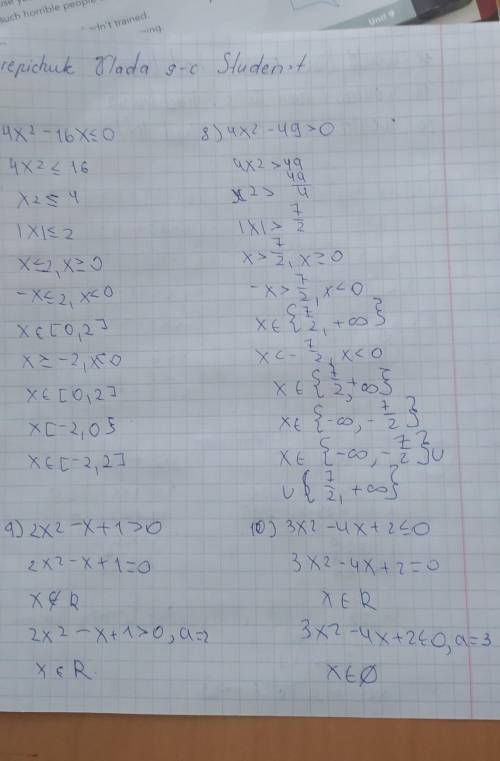 uch horrible people
dn't trained.
Unit 9
repichuk Vlada 9-c Student
4x² - 16x ≤ 0
4x² ≤ 16
x² ≤ 4
|x| ≤ 2
x ≤ 2, x ≥ 0
-x ≤ 2, x < 0
x ∈ [0, 2]
x ≥ -2, x < 0
x ∈ [0, 2]
x [-2, 0}
x ∈ [-2, 2]
8) 4x² - 49 > 0
4x² > 49
x² > 49/4
|x| > 7/2
x > 7/2, x ≥ 0
-x > 7/2, x < 0
x ∈ {7/2, +∞}
x < -7/2, x < 0
x ∈ {7/2, +∞}
x ∈ {-∞, -7/2}
x ∈ {-∞, -7/2} ∪
∪ {7/2, +∞}
9) 2x² - x + 1 > 0
2x² - x + 1 = 0
x ∉ R
2x² - x + 1 > 0, a = 2
x ∈ R
10) 3x² - 4x + 2 ≤ 0
3x² - 4x + 2 = 0
x ∈ R
3x² - 4x + 2 ≤ 0, a = 3
x ∈ ∅